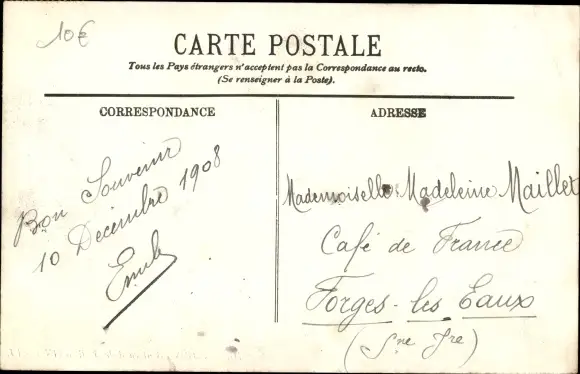 10€
CARTE POSTALE
Tous les Pays étrangers n'acceptent pas la Correspondance au recto.
(Se renseigner à la Poste).
CORRESPONDANCE
Bon Souvenir
10 Décembre 1908
Emile
ADRESSE
Mademoiselle Madeleine Maillet
Café de France
Forges-les Eaux
(Sne Ire)